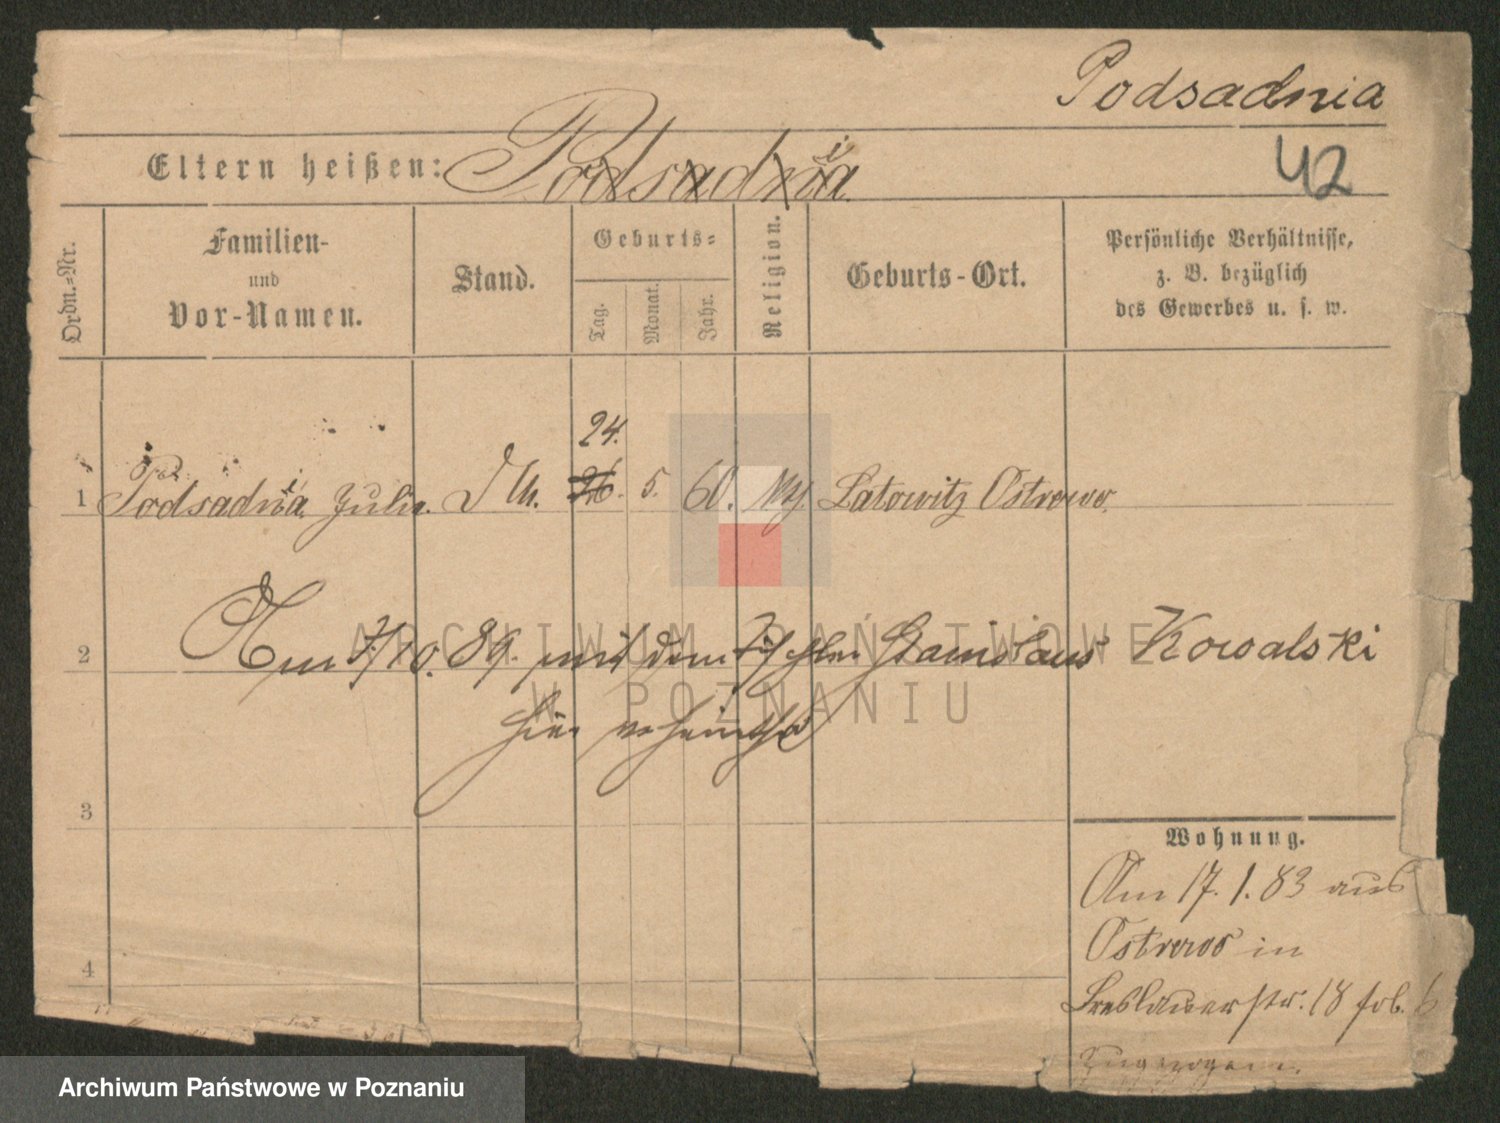 Podsadnia
42
Eltern heißen: Podsadnia
Ordn.-Nr.
Familien-
und
Vor-Namen.
Stand.
Geburts-
Tag.
Monat.
Jahr.
Religion.
Geburts-Ort.
Persönliche Verhältnisse,
z. B. bezüglich
des Gewerbes u. s. w.
24.
1 Podsadnia Julie. 26. 5. 60. Latowitz Ostrowo.
2 Am 7/10. 89. mit dem Tischler Stanislaus Kowalski
hier verheirathet
3
Wohnung.
Am 17. 1. 83 aus
Ostrowo in
4
Breslauerstr. 18
zugezogen.
ARCHIWUM PAŃSTWOWE
W POZNANIU
Archiwum Państwowe w Poznaniu